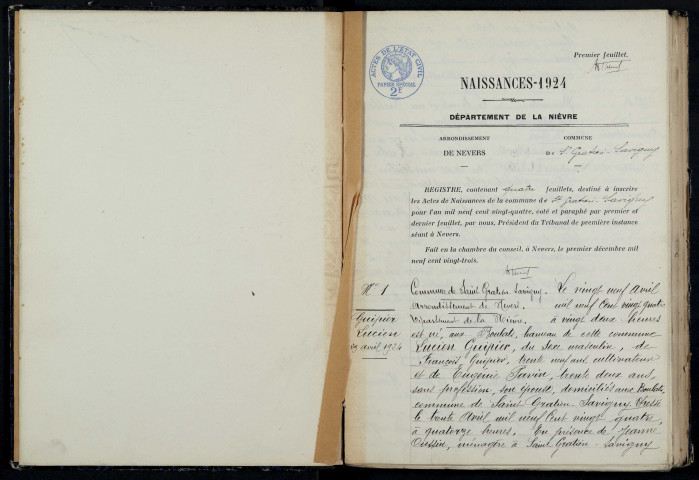 Premier feuillet.
ACTES DE L'ETAT CIVIL
PAPIER SPÉCIAL
2F
NAISSANCES-1924
DÉPARTEMENT DE LA NIÈVRE
ARRONDISSEMENT
DE NEVERS
COMMUNE
DE St Gratien-Savigny
REGISTRE, contenant quatre feuillets, destiné à inscrire
les Actes de Naissances de la commune de St Gratien-Savigny
pour l'an mil neuf cent vingt-quatre, coté et paraphé par premier et
dernier feuillet, par nous, Président du Tribunal de première instance
séant à Nevers.
Fait en la chambre du conseil, à Nevers, le premier décembre mil
neuf cent vingt-trois.
No 1
Guipier
Lucien
29 avril 1924
Commune de Saint Gratien Savigny
Arrondissement de Nevers
Département de la Nièvre.
Le vingt neuf Avril
mil neuf Cent vingt quatre
à vingt deux heures
est né, aux Boulats, hameau de cette commune
Lucien Guipier, du sexe masculin, de
François Guipier, trente neuf ans cultivateur
et de Eugénie Pavin, trente deux ans,
sans profession, son épouse, domiciliés aux Boulats,
commune de Saint Gratien-Savigny. Dressé
le trente Avril mil neuf Cent vingt quatre,
à quatorze heures. En présence de Jeanne
ménagère à Saint Gratien-Savigny